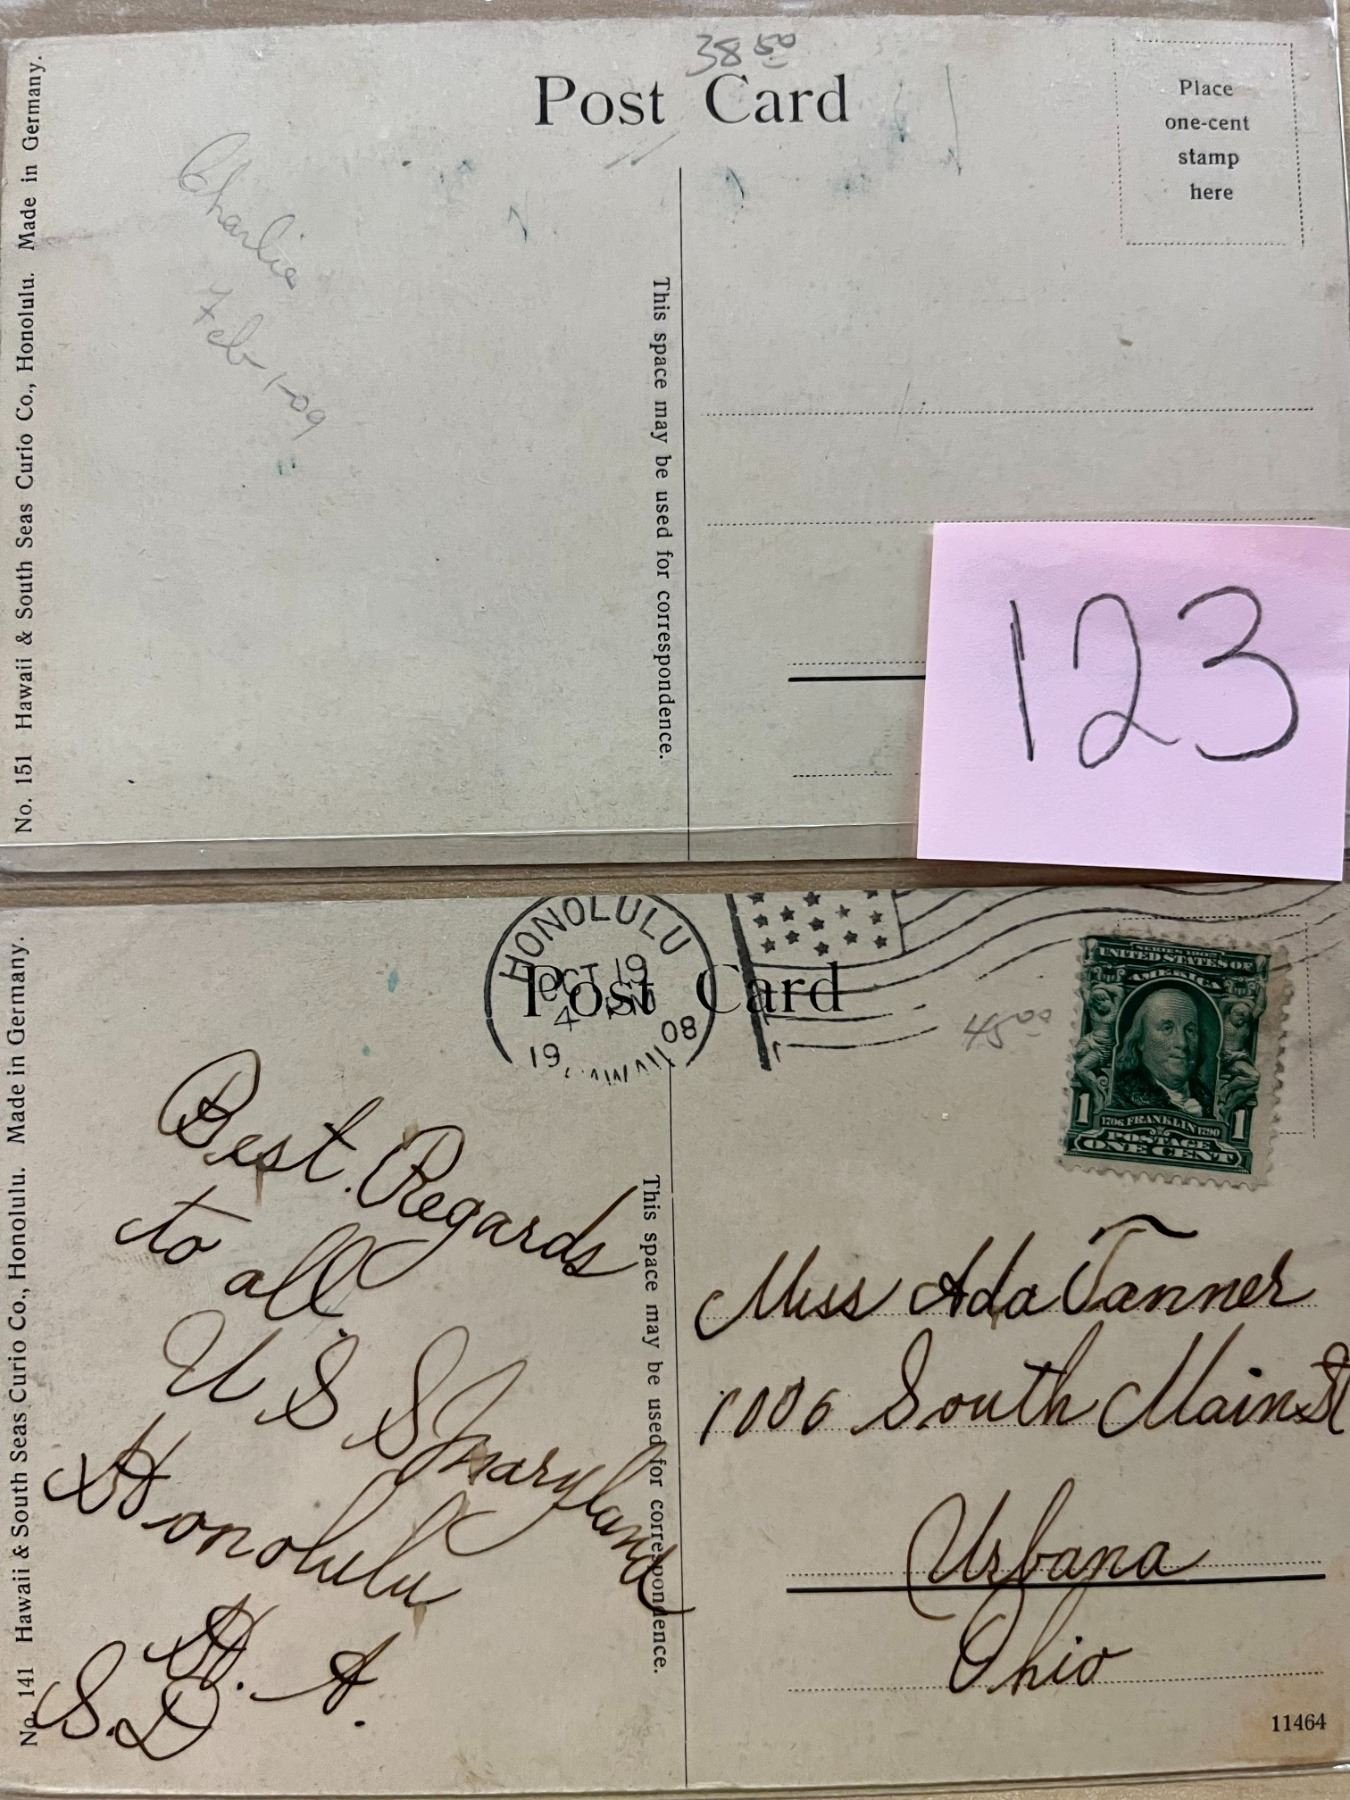 38 50
Post Card
Place
one-cent
stamp
here
Charlie
Feb-1-09
This space may be used for correspondence.
No. 151 Hawaii & South Seas Curio Co., Honolulu. Made in Germany.
123
HONOLULU
OCT 19
4
1908
Post Card
45 00
UNITED STATES OF
AMERICA
1 1706 FRANKLIN 1790 1
POSTAGE
ONE CENT
Best Regards
to all
U S S Maryland
Honolulu
H. A.
S.D
This space may be used for correspondence.
Miss Ada Tanner
1006 South Main St
Urbana
Ohio
11464
No. 141 Hawaii & South Seas Curio Co., Honolulu. Made in Germany.